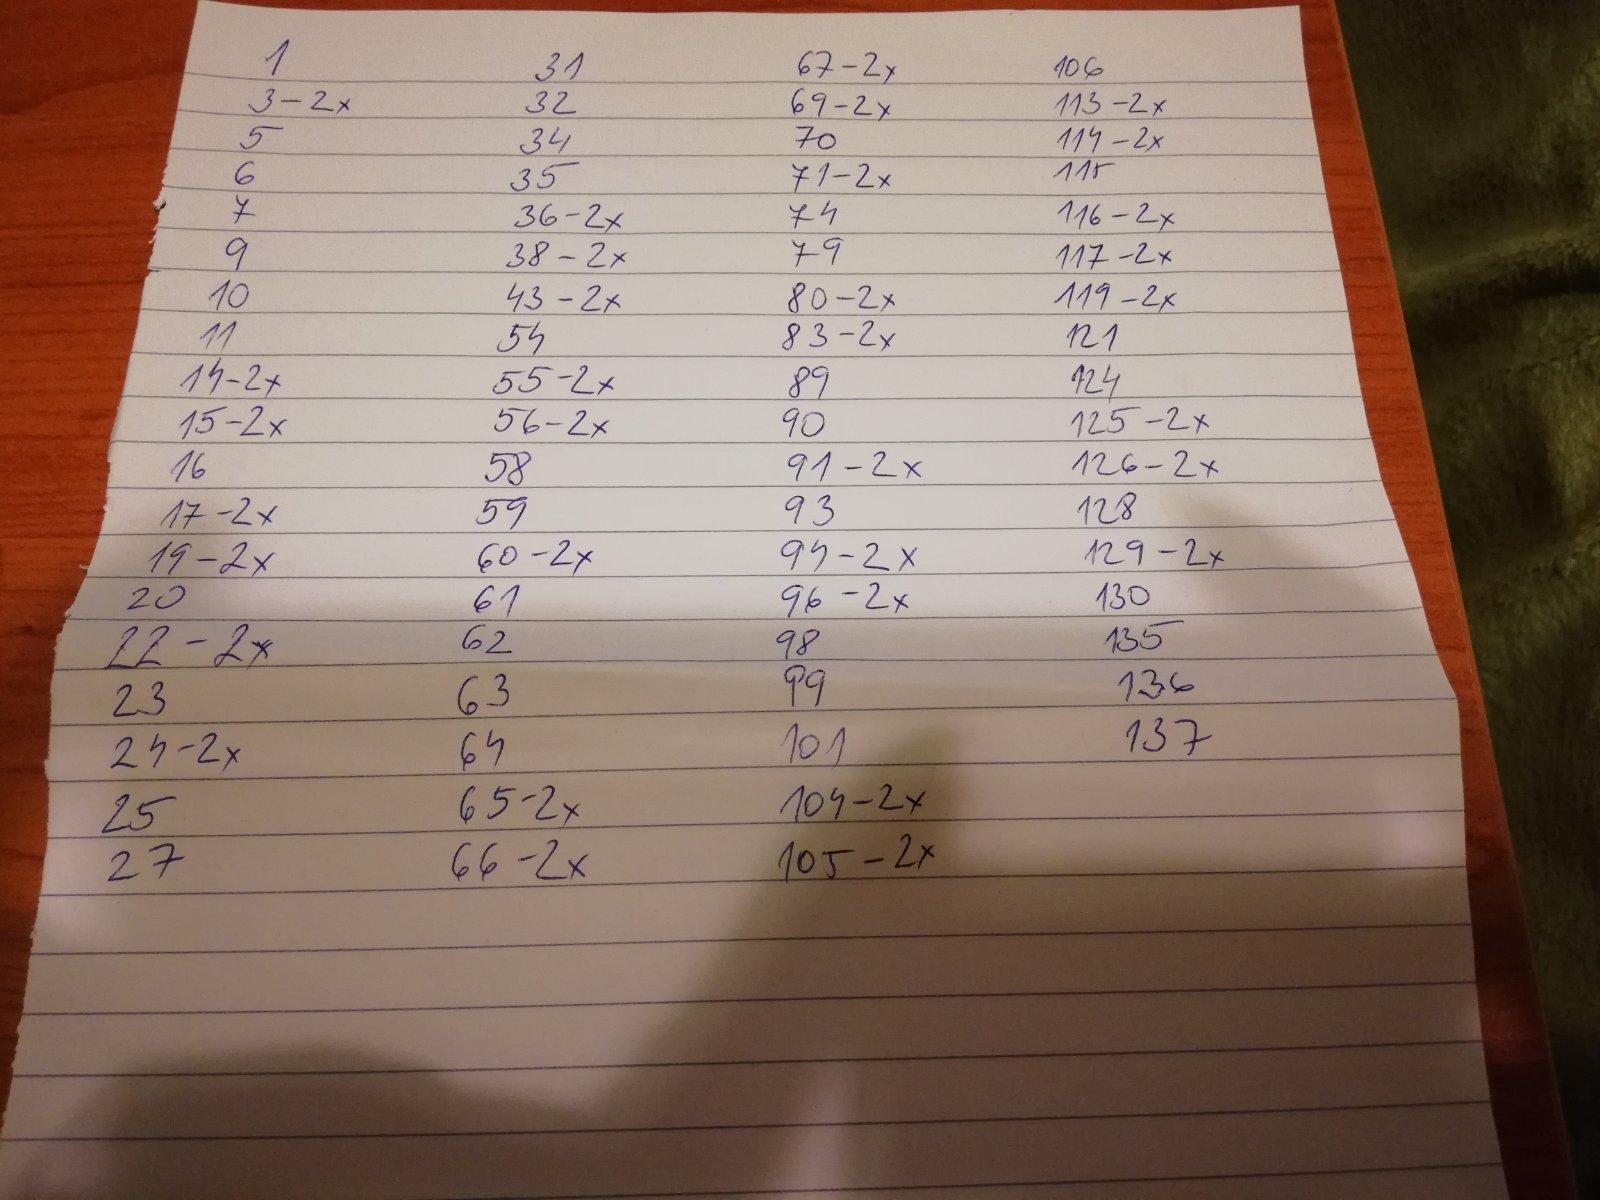 1
3-2x
5
6
7
9
10
11
14-2x
15-2x
16
17-2x
19-2x
20
22-2x
23
24-2x
25
27
31
32
34
35
36-2x
38-2x
43-2x
54
55-2x
56-2x
58
59
60-2x
61
62
63
64
65-2x
66-2x
67-2x
69-2x
70
71-2x
74
79
80-2x
83-2x
89
90
91-2x
93
94-2x
96-2x
98
99
101
104-2x
105-2x
106
113-2x
114-2x
115
116-2x
117-2x
119-2x
121
124
125-2x
126-2x
128
129-2x
130
135
136
137